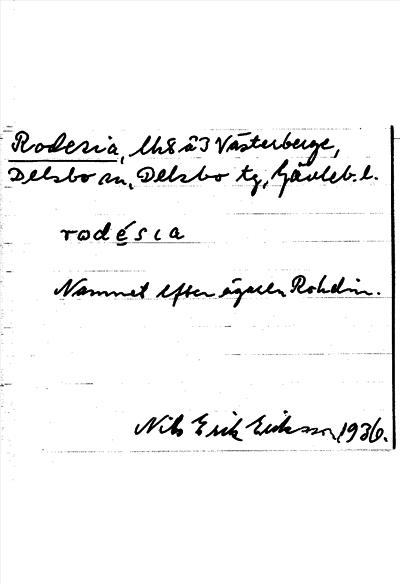 Rodesia, lh8 å 3 Västerberge,
Delsbo sn, Delsbo tg, Gävleb. l.
rodésia
Namnet efter ägaren Rohdin.
Nils Erik Eriksson, 1936.